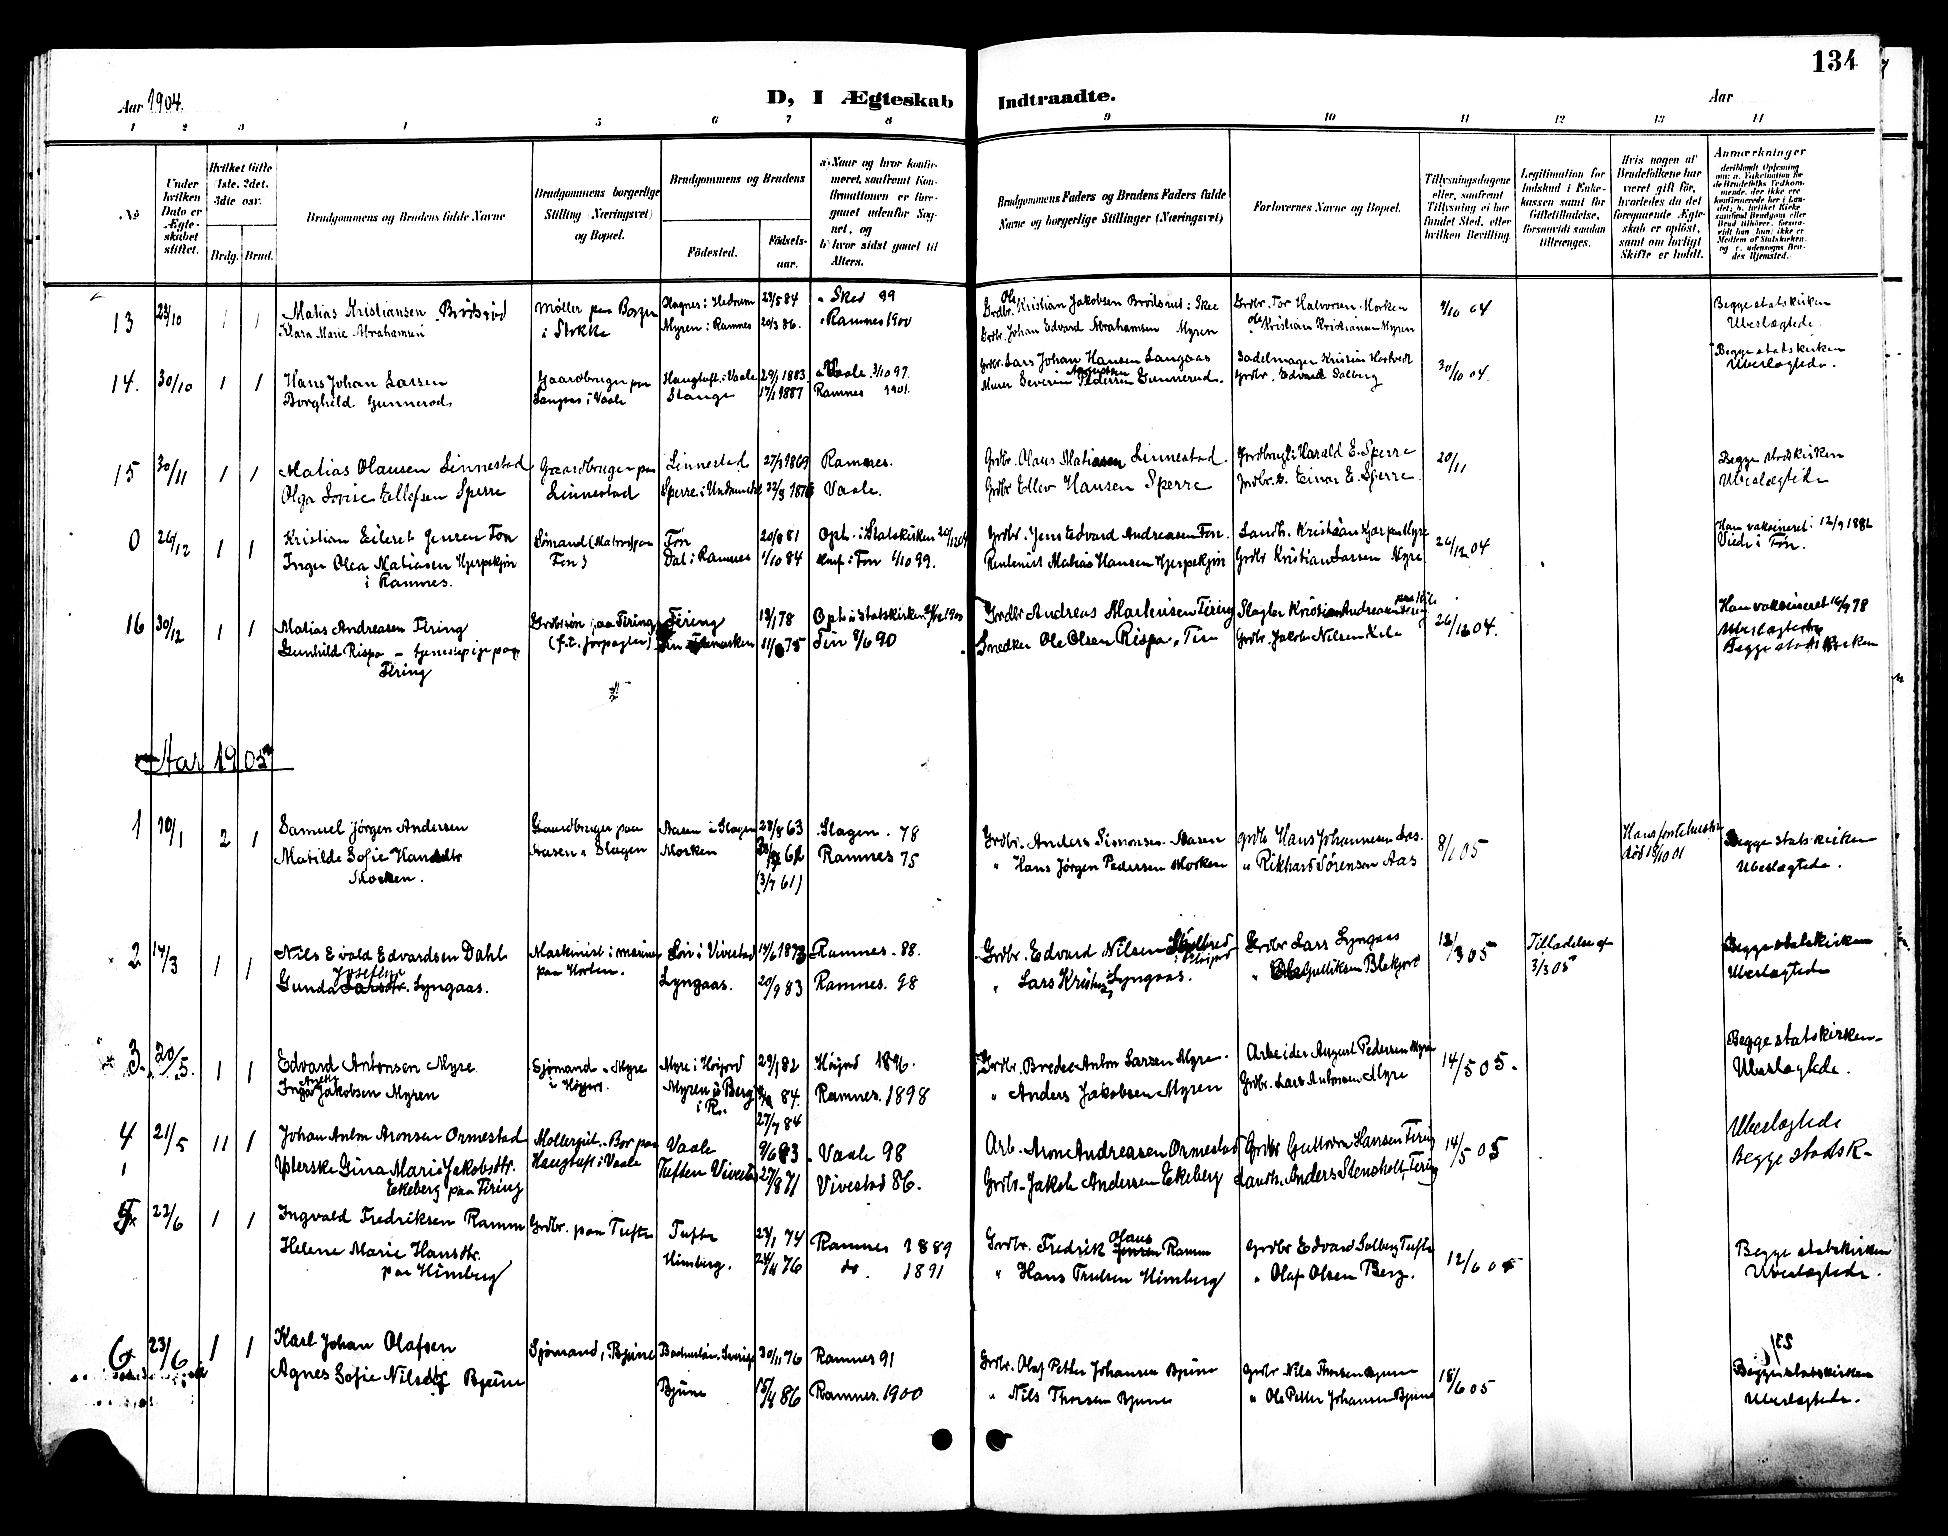 134
Aar 1904.
D, I Ægteskab Indtraadte.
Aar
1 2 3 4 5 6 7 8 9 10 11 12 13 14
No
Under hvilken Dato er Ægteskabet stiftet.
Hvilket Gifte 1ste, 2det, 3die osv.
Brdg. Brud.
Brudgommens og Brudens fulde Navne
Brudgommens borgerlige Stilling (Næringsvei) og Bopæl.
Brudgommens og Brudens
Fødested.
Fødselsaar.
a) Naar og hvor konfirmeret, saafremt Konfirmationen er foregaaet udenfor Sognet, og
b) hvor sidst gaaet til Alters.
Brudgommens Faders og Brudens Faders fulde Navne og borgerlige Stillinger (Næringsvei)
Forlovernes Navne og Bopæl.
Tillysningsdagene eller, saafremt Tillysning ei har fundet Sted, efter hvilken Bevilling
Legitimation for Indskud i Enkekassen samt for Giftetilladelse, forsaavidt saadan tiltrænges.
Hvis nogen af Brudefolkene har været gift før, hvorledes da det foregaaende Ægteskab er opløst, samt om lovligt Skifte er holdt.
Anmærkninger
13 23/10 1 1 Matias Kristiansen Brötsröd Møller paa Borgen Hagnes i Hedrum 23/5 84 Skee 99 Grdbr. Ole Kristian Jakobsen Brötsröd i Skee Grdbr. Tor Halvorsen Horken 9/10 04 Begge statskirken
Klara Marie Abrahamsen i Stokke Myren i Ramnes 20/3 86. Ramnes 1900 Grdbr. Johan Edvard Abrahamsen Myren Ole Kristian Kristiansen Myren Ubeslægtede.
14. 30/10 1 1 Hans Johan Larsen Gaardbruger paa Haugtuft i Vaale 29/1 1883. Vaale 3/10 97. Grdbr. Lars Johan Hansen Langaas Sadelmager Kristian 30/10 04. Begge statskirken
Borghild Gunnerød Langaas i Vaale Stange 17/1 1887 Ramnes 1901. Murer Severin Pedersen Gunnerød. Grdbr. Edvard Solberg Ubeslægtede.
15 30/11 1 1 Matias Olausen Linnestad Gaardbruger paa Linnestad 27/3 1869 Ramnes. Grdbr. Olaus Matiassen Linnestad. Gardbrug: Harald E. Sperre 20/11 Begge statskirken
Olga Sofie Ellefsen Sperre Linnestad Sperre i Undrumsdal 22/3 1876 Vaale. Grdbr. Ellev Hansen Sperre Grdbr. Einar E. Sperre. Ubeslægtede
0 26/12 1 1 Kristian Eilert Jensen Fon Sømand (Matros) paa Fon 20/8 81 Opt. i Statskirken 20/12 04 Grdbr. Jens Edvard Andreassen Fon. Landh. Kristian Hjar paa Myre 26/12 04 Han vaksineret 12/9 1882
Inger Olea Matiasen Hjerpekjøn Fon Dal i Ramnes 1/10 84 konf. i Fon 1/10 99. Rentenist Matias Hansen Hjerpekjøn Grdbr Kristian Larsen Myre Viede i Fon.
i Ramnes.
16 30/12 1 1 Matias Andreasen Firing Grdbrsøn paa Firing Firing 13/1 78 Opt. i Statskirken 1903 Grdbr Andreas Martinsen Firing Slagter Kristian Andreasen Firing 26/12 04. Han vaksineret 16/9 78
Gunhild Rispa - tjenestepige paa (f.t. forpagter) 11/8 75 Fin 5/6 90 Snedker Ole Olsen Rispa, Fin Grdbr. Jakob Nilsen Kile Ubeslægtede
Firing Begge statskirken
Aar 1905
1 10/1 2 1 Samuel Jørgen Andersen Gaardbruger paa Aasen i Slagen 28/8 63 Slagen. 78 Grdbr. Anders Simonsen Aasen Grdb Hans Johannesen Aas. 8/1 05 Hans første hustru Begge statskirken
Matilde Sofie Hansdtr Aasen i Slagen Morken 62 Ramnes 75 " Hans Jørgen Pedersen Morken " Rikhard Sørensen Aas død 18/10 01 Ubeslægtede.
Morken. (3/7 61)
2 14/3 1 1 Nils Evald Edvardsen Dahl Maskinist i marinen Løn i Vivestad 14/6 1873 Ramnes. 88. Grdbr. Edvard Nilsen Grdbr Lars Lyngaas 12/3 05 Tilladelse af Begge statskirken
Gunda Josefine Larsdtr. Lyngaas. paa Horten. Lyngaas. 20/9 83 Ramnes. 98 " Lars Kristian Lyngaas. " Ole Gulliksen Blekjort 3/3 05 Ubeslægtede
3. 20/5. 1 1 Edvard Antonsen Myre Sjømand Myre Myre i Høijord 29/1 82 Høijord 1896. Grdbr. Brede Anton Larsen Myre. Arbeider August Pedersen Myre 14/5 05. Begge statskirken
Inga Jakobsen Myren i Høijord. Myren Berg 84. Ramnes. 1898 " Anders Jakobsen Myren Grdbr. Lars Antonsen Myre Ubeslægtede.
i R. 27/7 84
4 21/5 11 1 Johan Anton Aronsen Ormestad Møllergut. Bor paa Vaale 9/6 83 Vaale 98 Arb. Aron Andreassen Ormestad Grdbr Guttorm Hansen Firing 14/5 05 Ubeslægtede
Ytterske Gina Marie Jakobsdtr. Haugtuft i Vaale Tuften Vivestad 27/8 71 Vivestad 86. Grdbr. Jakob Andersen Ekeberg Landh. Anders Stensholt, Firing Begge statsk-
Ekeberg paa Firing
5 22/6 1 1 Ingvald Fredriksen Ramm Grdbr. paa Tufte Tufte 23/1 74 Ramnes 1889 Grdbr. Fredrik Olaus Jensen Ramm Grdbr Edvard Solberg Tufte 12/6 05 Begge statskirken
Helene Marie Hansdtr. Himberg. 24/4 76 do. 1891 " Hans Trulsen Himberg " Olaf Olsen Berg. Ubeslægtede.
paa Himberg
6 23/6 1 1 Karl Johan Olafsen Sjømand, Bjune Sverige 30/11 76 Ramnes 91 Grdbr. Olaf Petter Johansen Bjune Grdbr Nils Thorsen Bjune 18/6 05 Begge statskirken
Agnes Sofie Nilsdtr Bjune Bjune 15/4 86 Ramnes. 1900 " Nils Thorsen Bjune " Ole Petter Johansen Bjune Ubeslægtede.